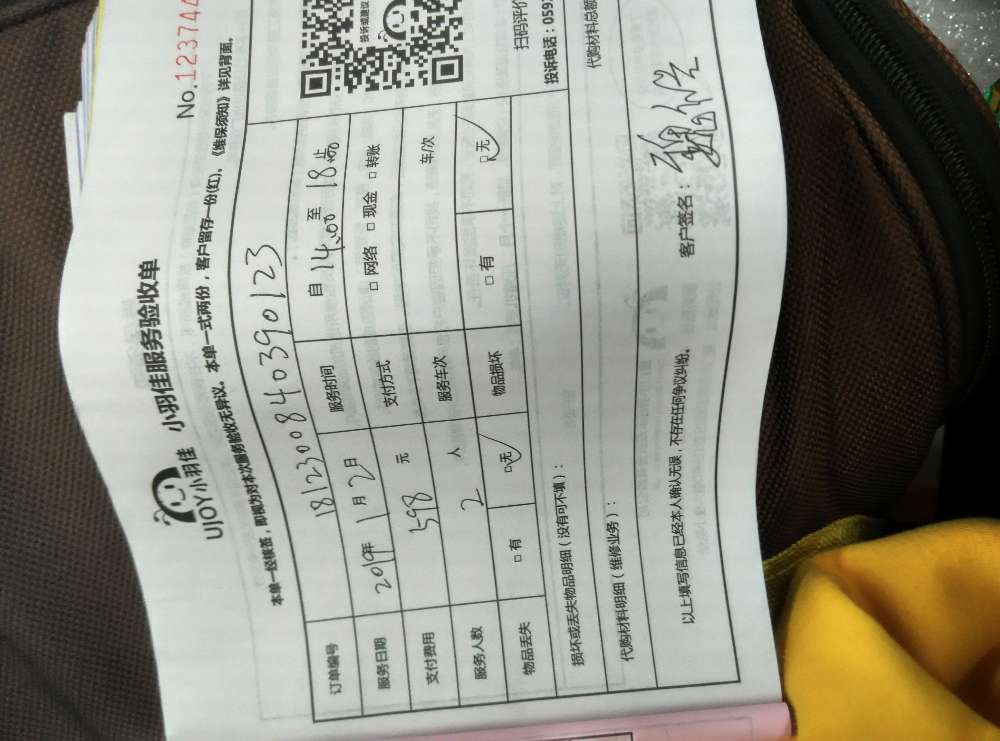 UJOY小羽佳 小羽佳服务验收单
No.123744
本单一经核签，即视为对本次服务验收无异议。本单一式两份，客户留存一份(红)。《维保须知》详见背面。
订单编号 1812300840390123
投诉或建议
服务日期 2019年 1月 2日 服务时间 自 14:00 至 18:00 止
支付费用 598 元 支付方式 □ 网络 □ 现金 □ 转账
服务人数 2 人 服务车次 车/次
扫码评价
物品丢失 □ 有 □ 无 物品损坏 □ 有 □ 无
投诉电话：059
损坏或丢失物品明细（没有可不填）：
代购材料明细（维修业务）： 代购材料总额
以上填写信息已经本人确认无误，不存在任何争议纠纷。 客户签名：